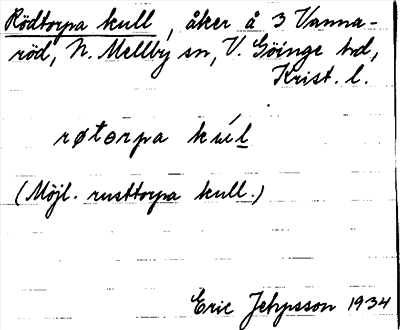 Rödtorpa kull, åker å 3 Vanna-
röd, N. Mellby sn, V. Göinge hd,
Krist. l.
røtorpa kul
(Möjl. rusttorpa kull.)
Eric 1934